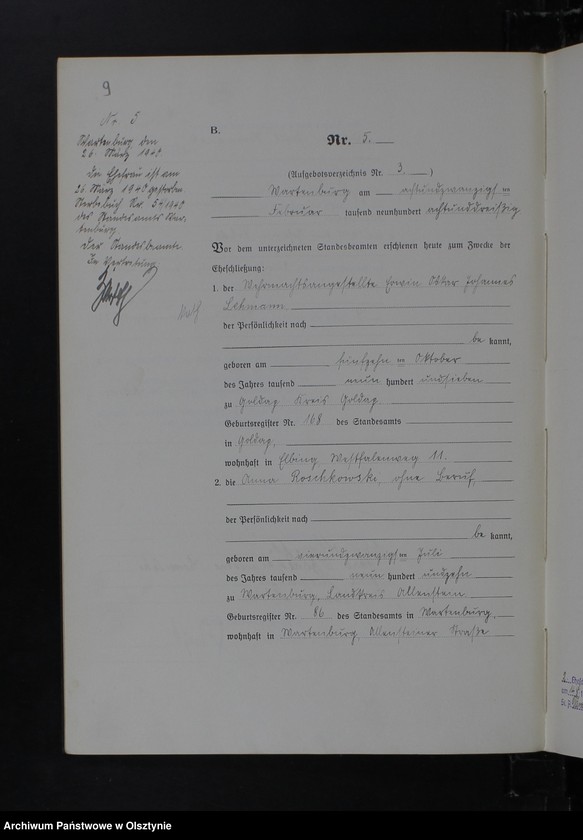 9
No 5
Wartenburg den
26. März 1940.
Die Ehefrau ist am
26. März 1940 gestorben
Sterbebuch Nr. 54/1940
des Standesamts War-
tenburg
Der Standesbeamte
In Vertretung
B.
Nr. 5.
(Aufgebotsverzeichnis Nr. 3.)
Wartenburg am achtundzwanzigsten
Februar tausend neunhundert achtunddreißig
Vor dem unterzeichneten Standesbeamten erschienen heute zum Zwecke der
Eheschließung:
1. der Wehrmachtsangestellte Erwin Oskar Johannes
Lehmann
der Persönlichkeit nach
be kannt,
geboren am fünfzehnten Oktober
des Jahres tausend neun hundert undsieben
zu Goldap Kreis Goldap
Geburtsregister Nr. 168 des Standesamts
in Goldap,
wohnhaft in Elbing Westfalenweg 11.
2. die Anna Roschkowski, ohne Beruf,
der Persönlichkeit nach
be kannt,
geboren am vierundzwanzigsten Juli
des Jahres tausend neun hundert undzehn
zu Wartenburg, Landkreis Allenstein
Geburtsregister Nr. 86 des Standesamts in Wartenburg,
wohnhaft in Wartenburg, Allensteiner Straße
Archiwum Państwowe w Olsztynie